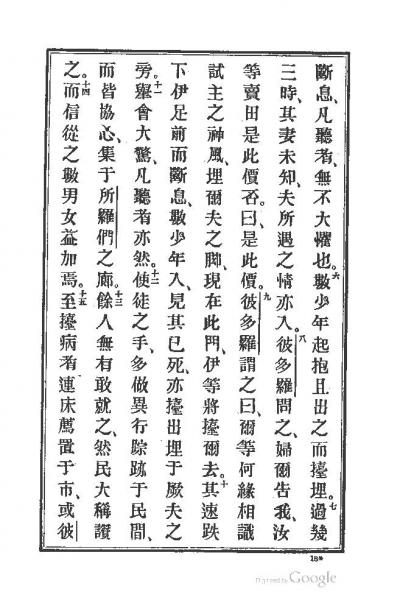 斷息、凡聽者、無不大懼也。六數少年起抱且出之而擡埋。七過幾
三時、其妻未知夫所遇之情亦入。八彼多羅問之、婦爾告我、汝
等賣田是此價否。曰、是此價。九彼多羅謂之曰、爾等何緣相議
試主之神風、埋爾夫之脚、現在此門、伊等將擡爾去。十其速跌
下伊足前而斷息、數少年入、見其已死、亦擡出埋于厥夫之
旁。十一舉會大驚、凡聽者亦然。十二使徒之手、多做異行踪跡于民間、
而皆協心、集于所羅們之廊。十三餘人無有敢就之、然民大稱讚
之。十四而信從之數男女益加焉。十五至擡病者連床薦置于市、或彼
18*
Digitized by Google